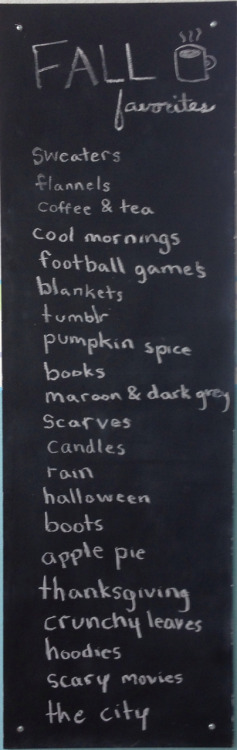 FALL
favorites
Sweaters
flannels
Coffee & tea
cool mornings
football games
blankets
tumblr
pumpkin spice
books
maroon & dark grey
Scarves
Candles
rain
halloween
boots
apple pie
thanksgiving
crunchy leaves
hoodies
scary movies
the city